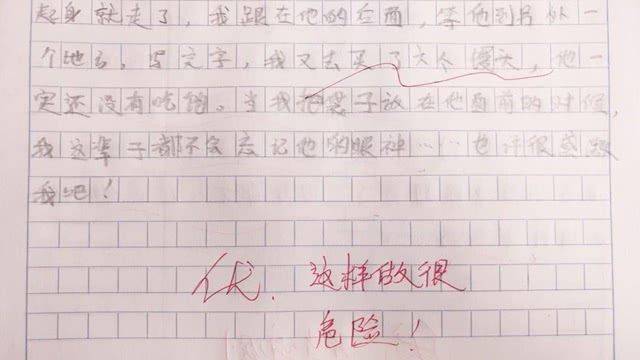 起身就走了，我跟在他的后面，等他到另外一
个地方，写文字，我又去买了六个馒头，他一
定还没有吃饱。当我把袋子放在他面前的时候，
我这辈子都不会忘记他的眼神……也许很感激
我吧！
优．这样做很
危险！